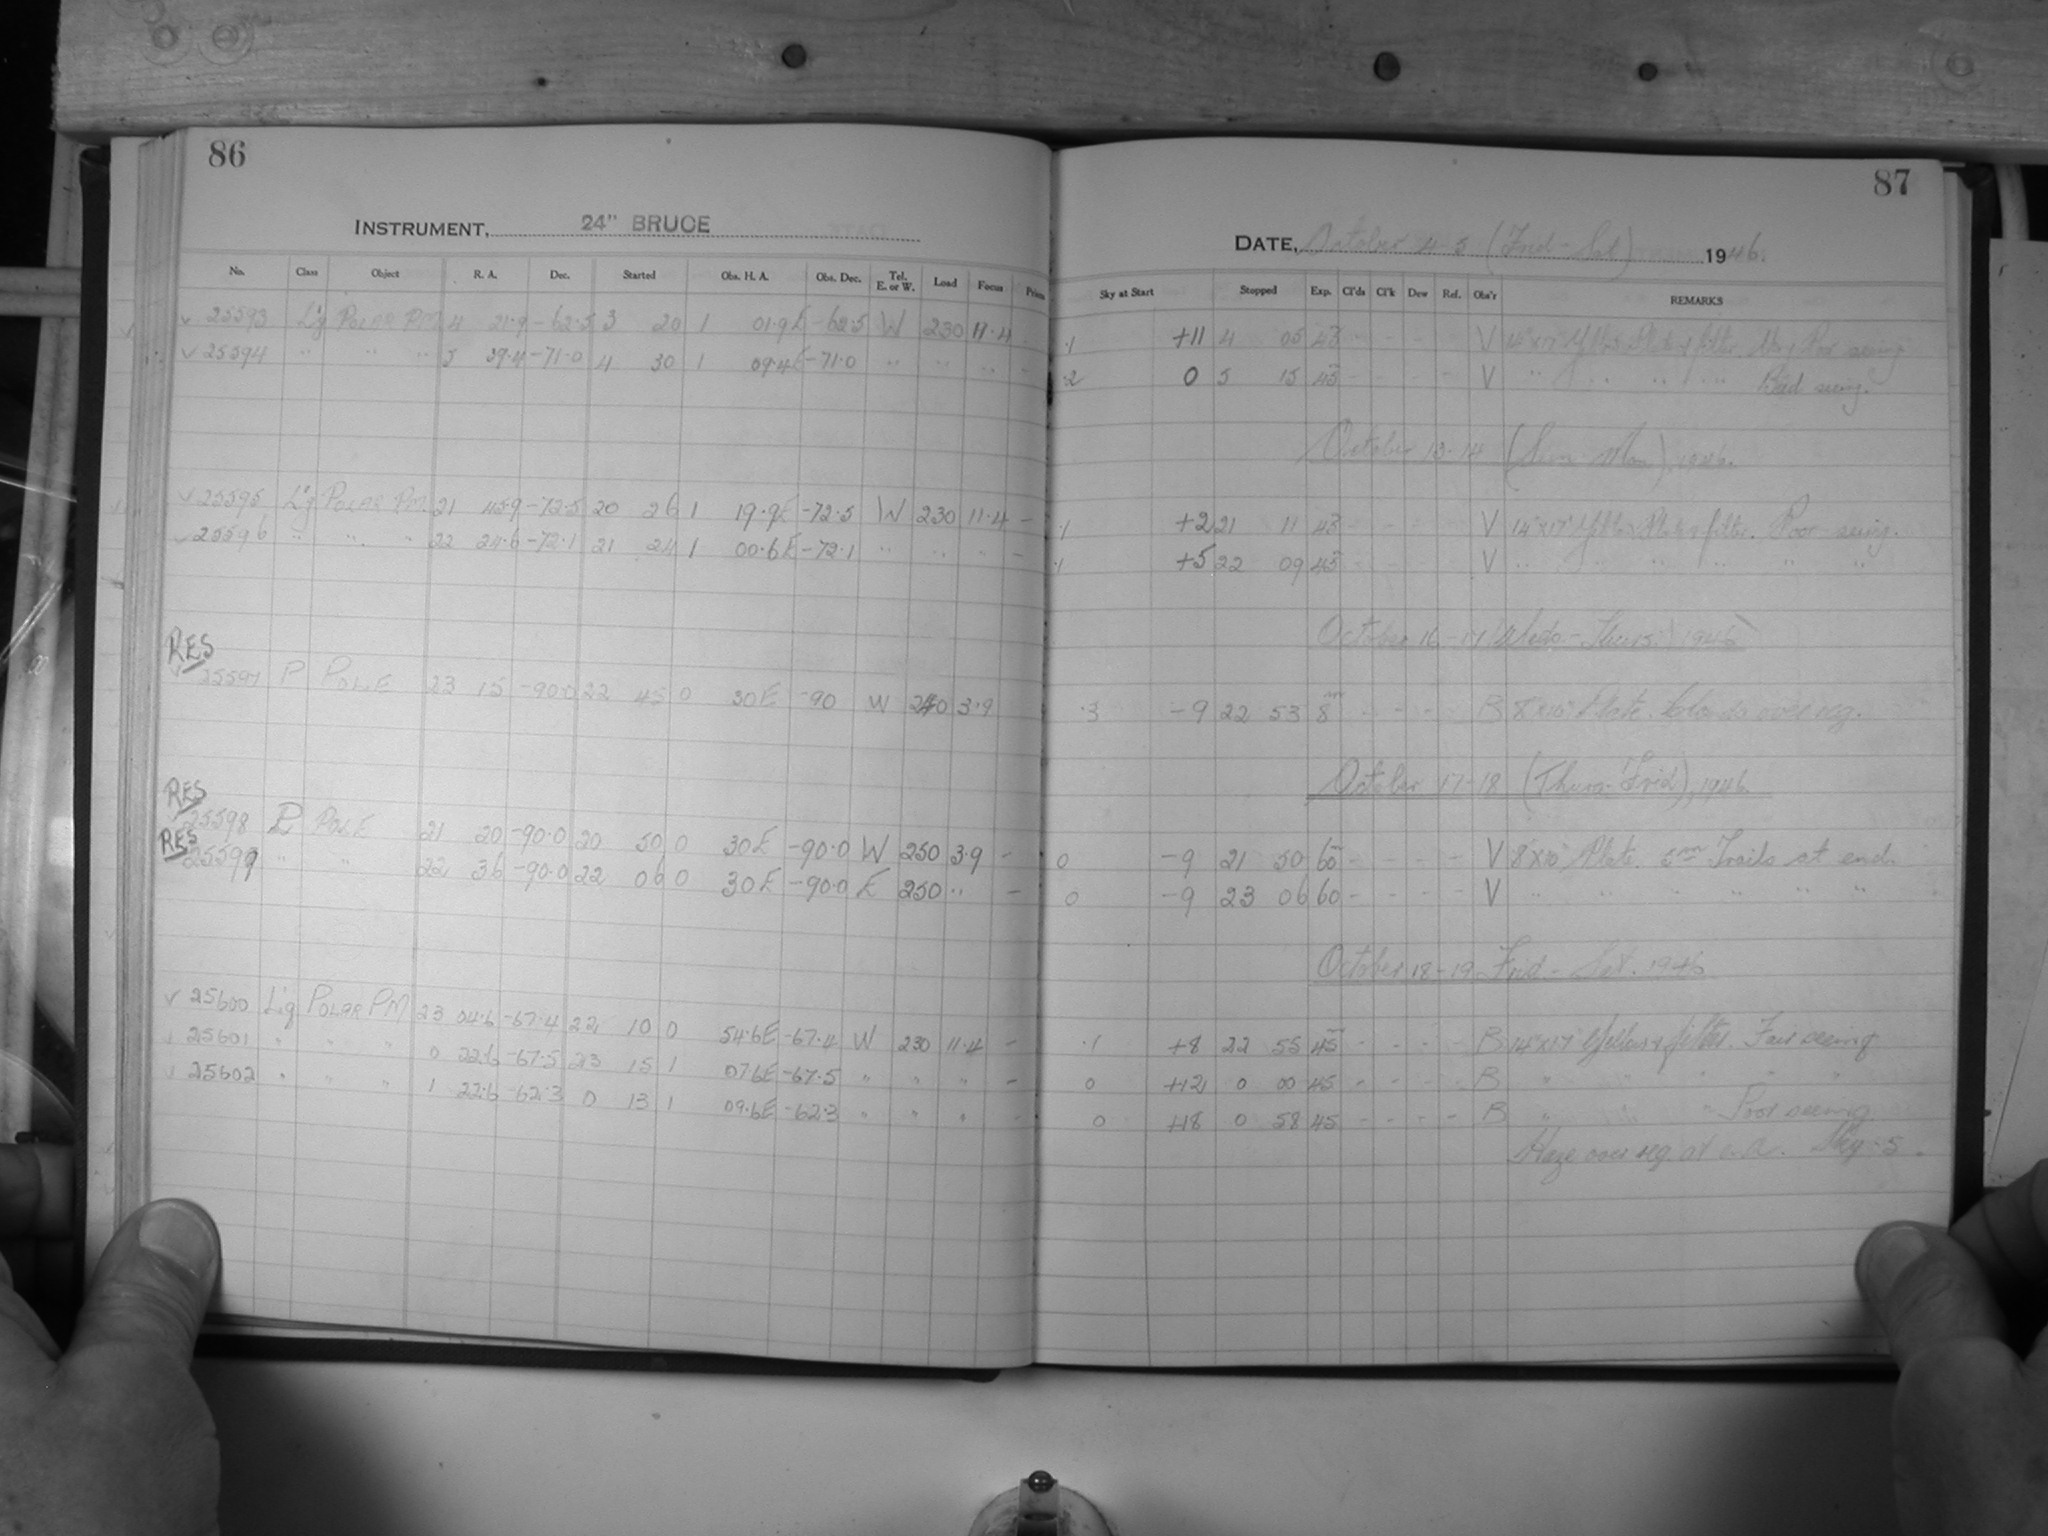 86
INSTRUMENT, 24" BRUCE
No. Class Object R. A. Dec. Started Obs. H. A. Obs. Dec. Tel. E. or W. Load Focus
25593 L'g POLAR PM 4 21.9 -62.5 3 20 1 01.9E -62.5 W 230 11.4
25594 " " " 5 39.4 -71.0 4 30 1 09.4E -71.0 " " " -
25595 L'g POLAR PM 21 45.9 -72.5 20 26 1 19.9E -72.5 W 230 11.4 -
25596 " " " 22 24.6 -72.1 21 24 1 00.6E -72.1 " " " -
RES
25597 P POLE 23 15 -90.0 22 45 0 30E -90 W 240 3.9
RES
25598 P POLE 21 20 -90.0 20 50 0 30E -90.0 W 250 3.9 -
RES
25599 " " 22 36 -90.0 22 06 0 30E -90.0 E 250 " -
25600 L'g POLAR PM 23 04.6 -67.4 22 10 0 54.6E -67.4 W 230 11.4 -
25601 " " " 0 22.6 -67.5 23 15 1 07.6E -67.5 " " " -
25602 " " " 1 22.6 -62.3 0 13 1 09.6E -62.3 " " " -
87
DATE, October 4-5 (Frid - Sat) 1946.
Sky at Start Stopped Exp. Cl'ds Cl'k Dew Ref. Obs'r REMARKS
.1 +11 4 05 45 - - - - V 14"x17" Yellow Plate & filter. Poor seeing
.2 0 5 15 45 - - - - V " " " " Bad seeing.
October 13-14 (Sun - Mon), 1946.
.1 +2 21 11 45 - - - - V 14"x17" Yellow Plate & filter. Poor seeing.
.1 +5 22 09 45 - - - - V " " " " " "
October 16-17 Weds - Thurs. 1946
.3 -9 22 53 8m - - - - B 8"x10" Plate. Clouds over reg.
October 17-18 (Thurs-Frid), 1946.
0 -9 21 50 60 - - - - V 8"x10" Plate. 5m Trails at end.
0 -9 23 06 60 - - - - V " " " " " "
October 18-19 Frid - Sat. 1946
.1 +8 22 55 45 - - - - B 14"x17" Yellow & filter. Fair seeing
0 +12 0 00 45 - - - - B " " " " "
0 +18 0 58 45 - - - - B " " " Poor seeing
Haze over reg. at Sky - 5.